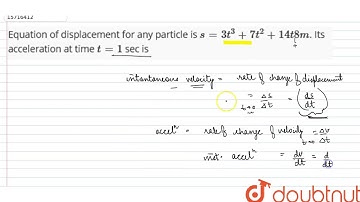 15716412
Equation of displacement for any particle is s = 3t³ + 7t² + 14t8m. Its
acceleration at time t = 1 sec is
instantaneous velocity = rate of change of displacement
= Δs/Δt = (ds/dt)
t→0
accelⁿ = rate of change of velocity = Δv/Δt
t→0
inst. accelⁿ = dv/dt = d/dt
doubtnut